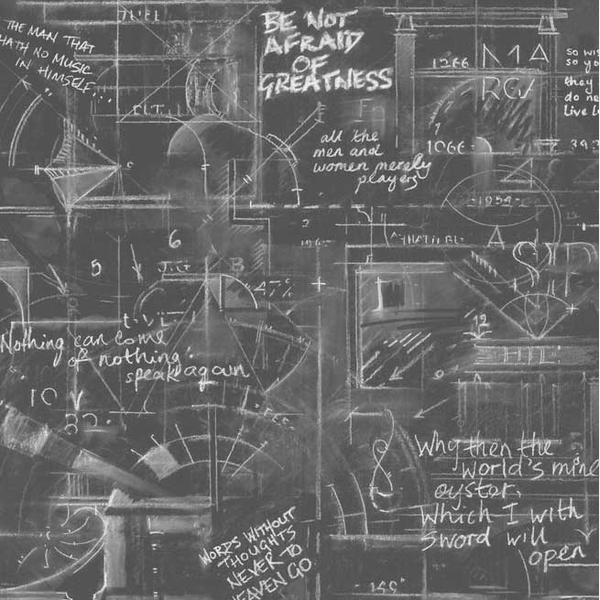 THE MAN THAT
HATH NO MUSIC
IN HIMSELF...
BE NOT
AFRAID
OF
GREATNESS
1266
MA
RG
so wis
so yo
they
do ne
Live l
FLT.
all the
men and
women merely
players
1066
393
1954
A
6
5
B
47%
Nothing can come
of nothing:
speak again
10
12
HIL
Why then the
world's mine
oyster,
which I with
sword will
open
WORDS WITHOUT
THOUGHTS
NEVER TO
HEAVEN GO